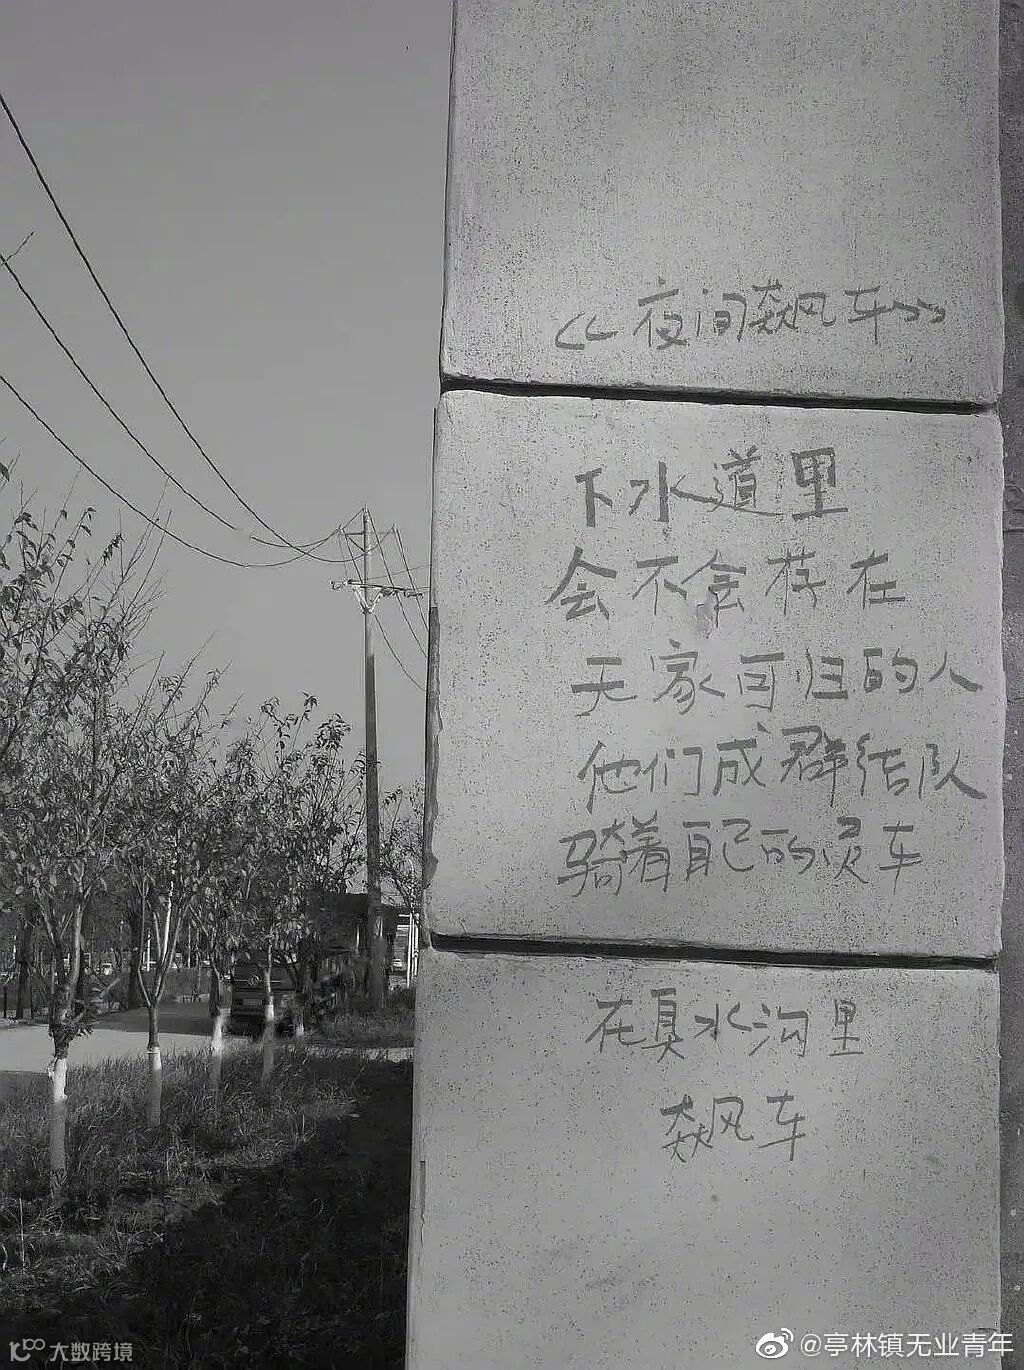 《夜间飙车》
下水道里
会不会存在
无家可归的人
他们成群结队
骑着自己的灵车
在臭水沟里
飙车
大数跨境
@亭林镇无业青年